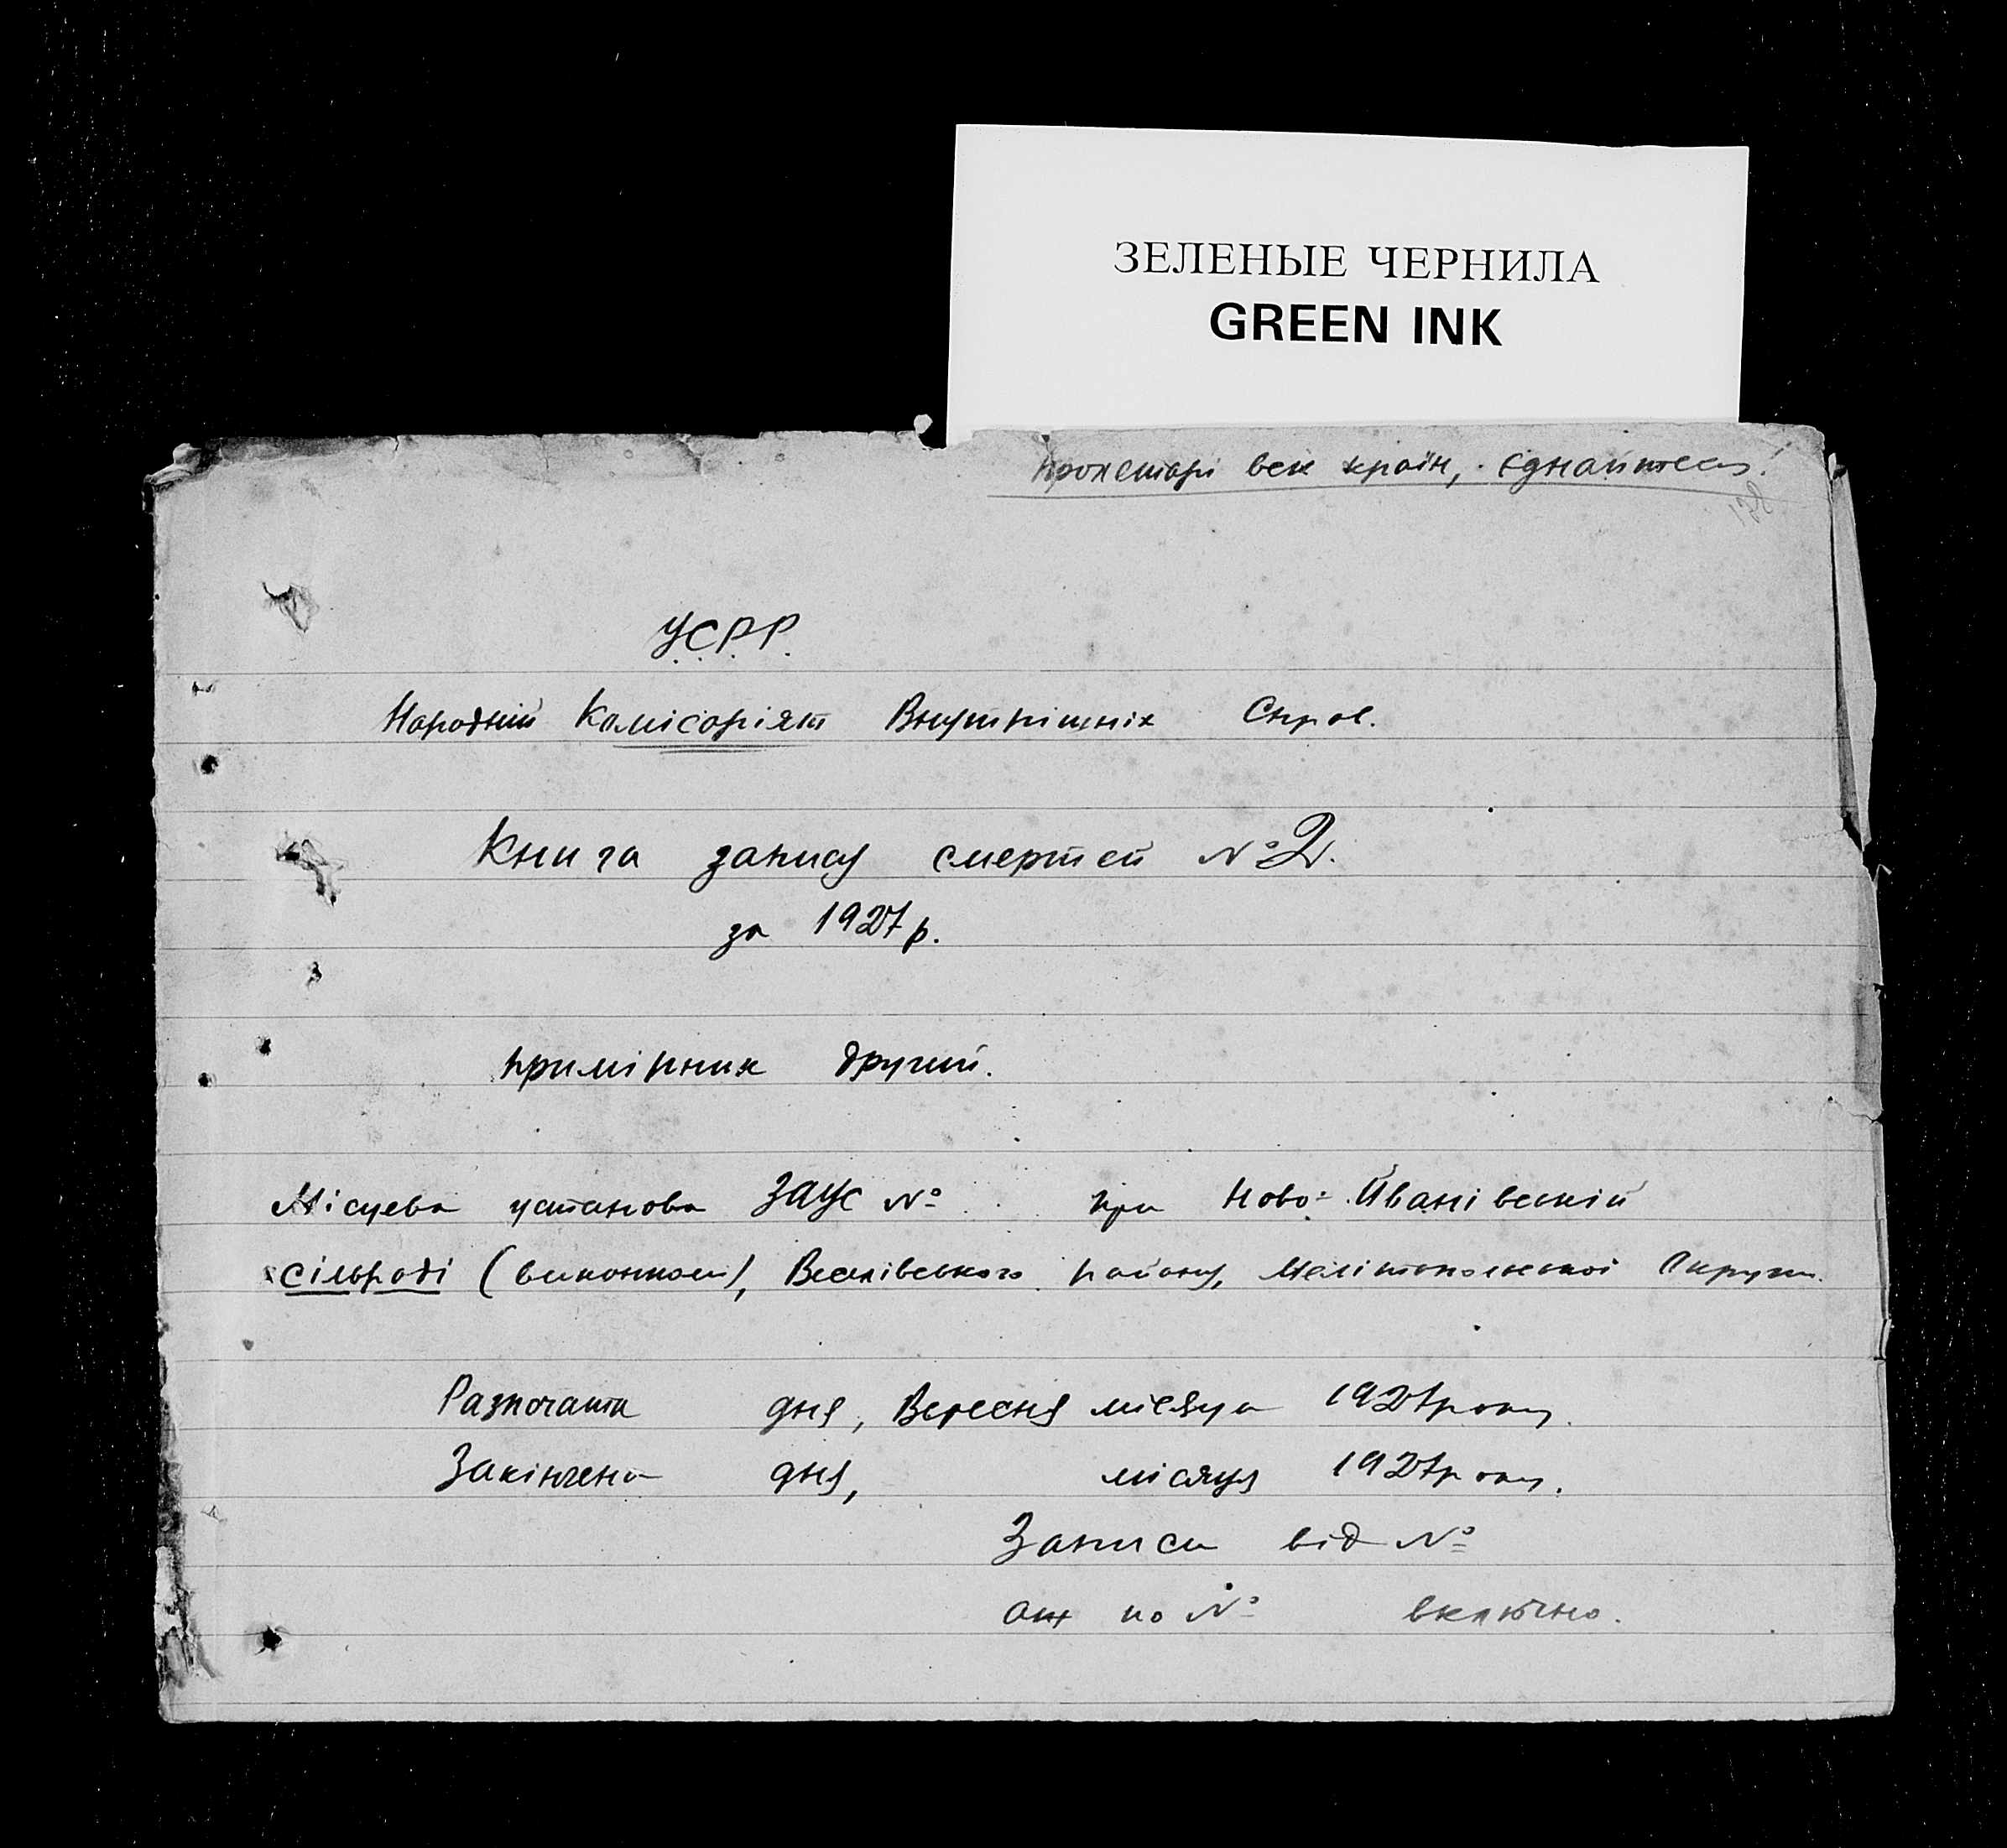 ЗЕЛЕНЫЕ ЧЕРНИЛА
GREEN INK
Пролетарі всіх країн, єднайтесь!
У.С.Р.Р.
Народній Комісоріят Внутрішніх Справ.
Книга запису смертей №2.
за 1927 р.
примірник другий.
Місцева установа ЗАГС № при Ново-Йванівській
сільраді (виконком), Веселівського району, Мелітопольської Округи.
Разпочата дня, Вересня місяця 1927 року.
Закінчена дня, місяця 1927 року.
Записи від №
аж по № включно.